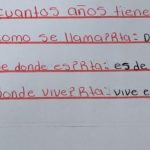 cuantos años tiene
omo se llama?Rta: D
e donde es?Rta: es de
onde vive?Rta: vive e